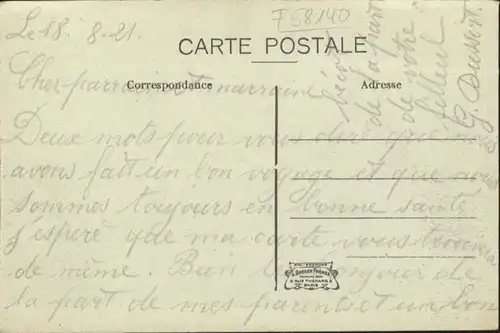 F 58140
Le 18. 8-21.
CARTE POSTALE
Correspondance
Adresse
Cher parrain et marraine
Deux mots pour vous dire que nous
avons fait un bon voyage et que nous
sommes toujours en bonne santé
J'espère que ma carte vous trouvera
de même. Bien le bonjour de
la part de mes parents et un bon
de la part
de votre
filleul
G.
BREGER FRÈRES
9 RUE THÉNARD 9
PARIS